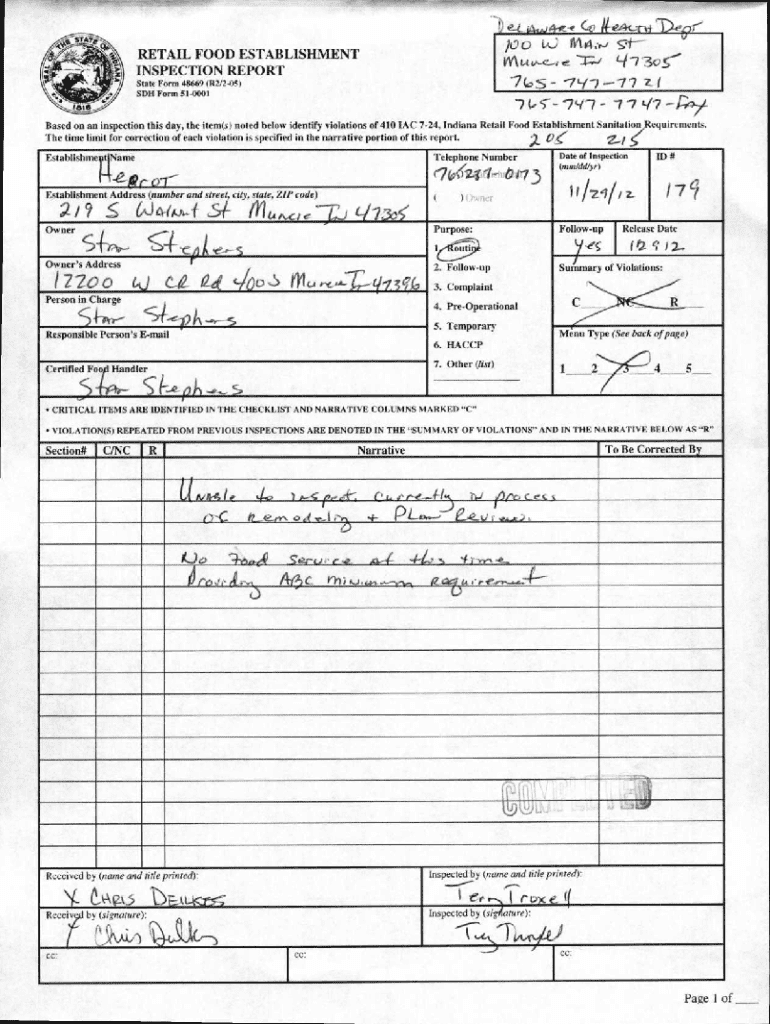 DELAWARE Co HEALTH Dept
100 W MAIN St
Muncie IN 47305
765-747-7721
765-747-7747-Fax
RETAIL FOOD ESTABLISHMENT
INSPECTION REPORT
State Form 48669 (R2/2-05)
SDH Form 51-0001
Based on an inspection this day, the item(s) noted below identify violations of 410 IAC 7-24, Indiana Retail Food Establishment Sanitation Requirements.
The time limit for correction of each violation is specified in the narrative portion of this report.
205 215
Establishment Name
Heorot
Telephone Number
Date of Inspection
(mm/dd/yr)
ID #
0173
( ) Owner
11/29/12
179
Establishment Address (number and street, city, state, ZIP code)
219 S Walnut St Muncie IN 47305
Owner
Stan Stephens
Purpose:
1. Routine
2. Follow-up
3. Complaint
4. Pre-Operational
5. Temporary
6. HACCP
7. Other (list)
Follow-up
yes
Release Date
12 9 12
Owner's Address
12200 W CR Rd 400 S Muncie IN 47396
Summary of Violations:
C NC R
Person in Charge
Stan Stephens
Menu Type (See back of page)
1 2 3 4 5
Responsible Person's E-mail
Certified Food Handler
Stan Stephens
• CRITICAL ITEMS ARE IDENTIFIED IN THE CHECKLIST AND NARRATIVE COLUMNS MARKED "C"
• VIOLATION(S) REPEATED FROM PREVIOUS INSPECTIONS ARE DENOTED IN THE "SUMMARY OF VIOLATIONS" AND IN THE NARRATIVE BELOW AS "R"
Section# C/NC R Narrative To Be Corrected By
Unable to inspect. Currently in process
of remodeling + Plan Review.
No Food Service at this time
Providing ABC minimum requirement
COMPLETED
Received by (name and title printed):
X CHRIS DEILKES
Inspected by (name and title printed):
Terry Troxell
Received by (signature):
Inspected by (signature):
cc:
cc:
cc:
Page 1 of